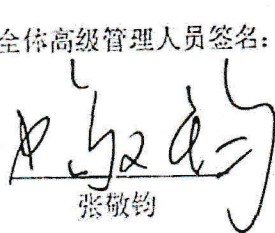 全体高级管理人员签名：
张敬钧